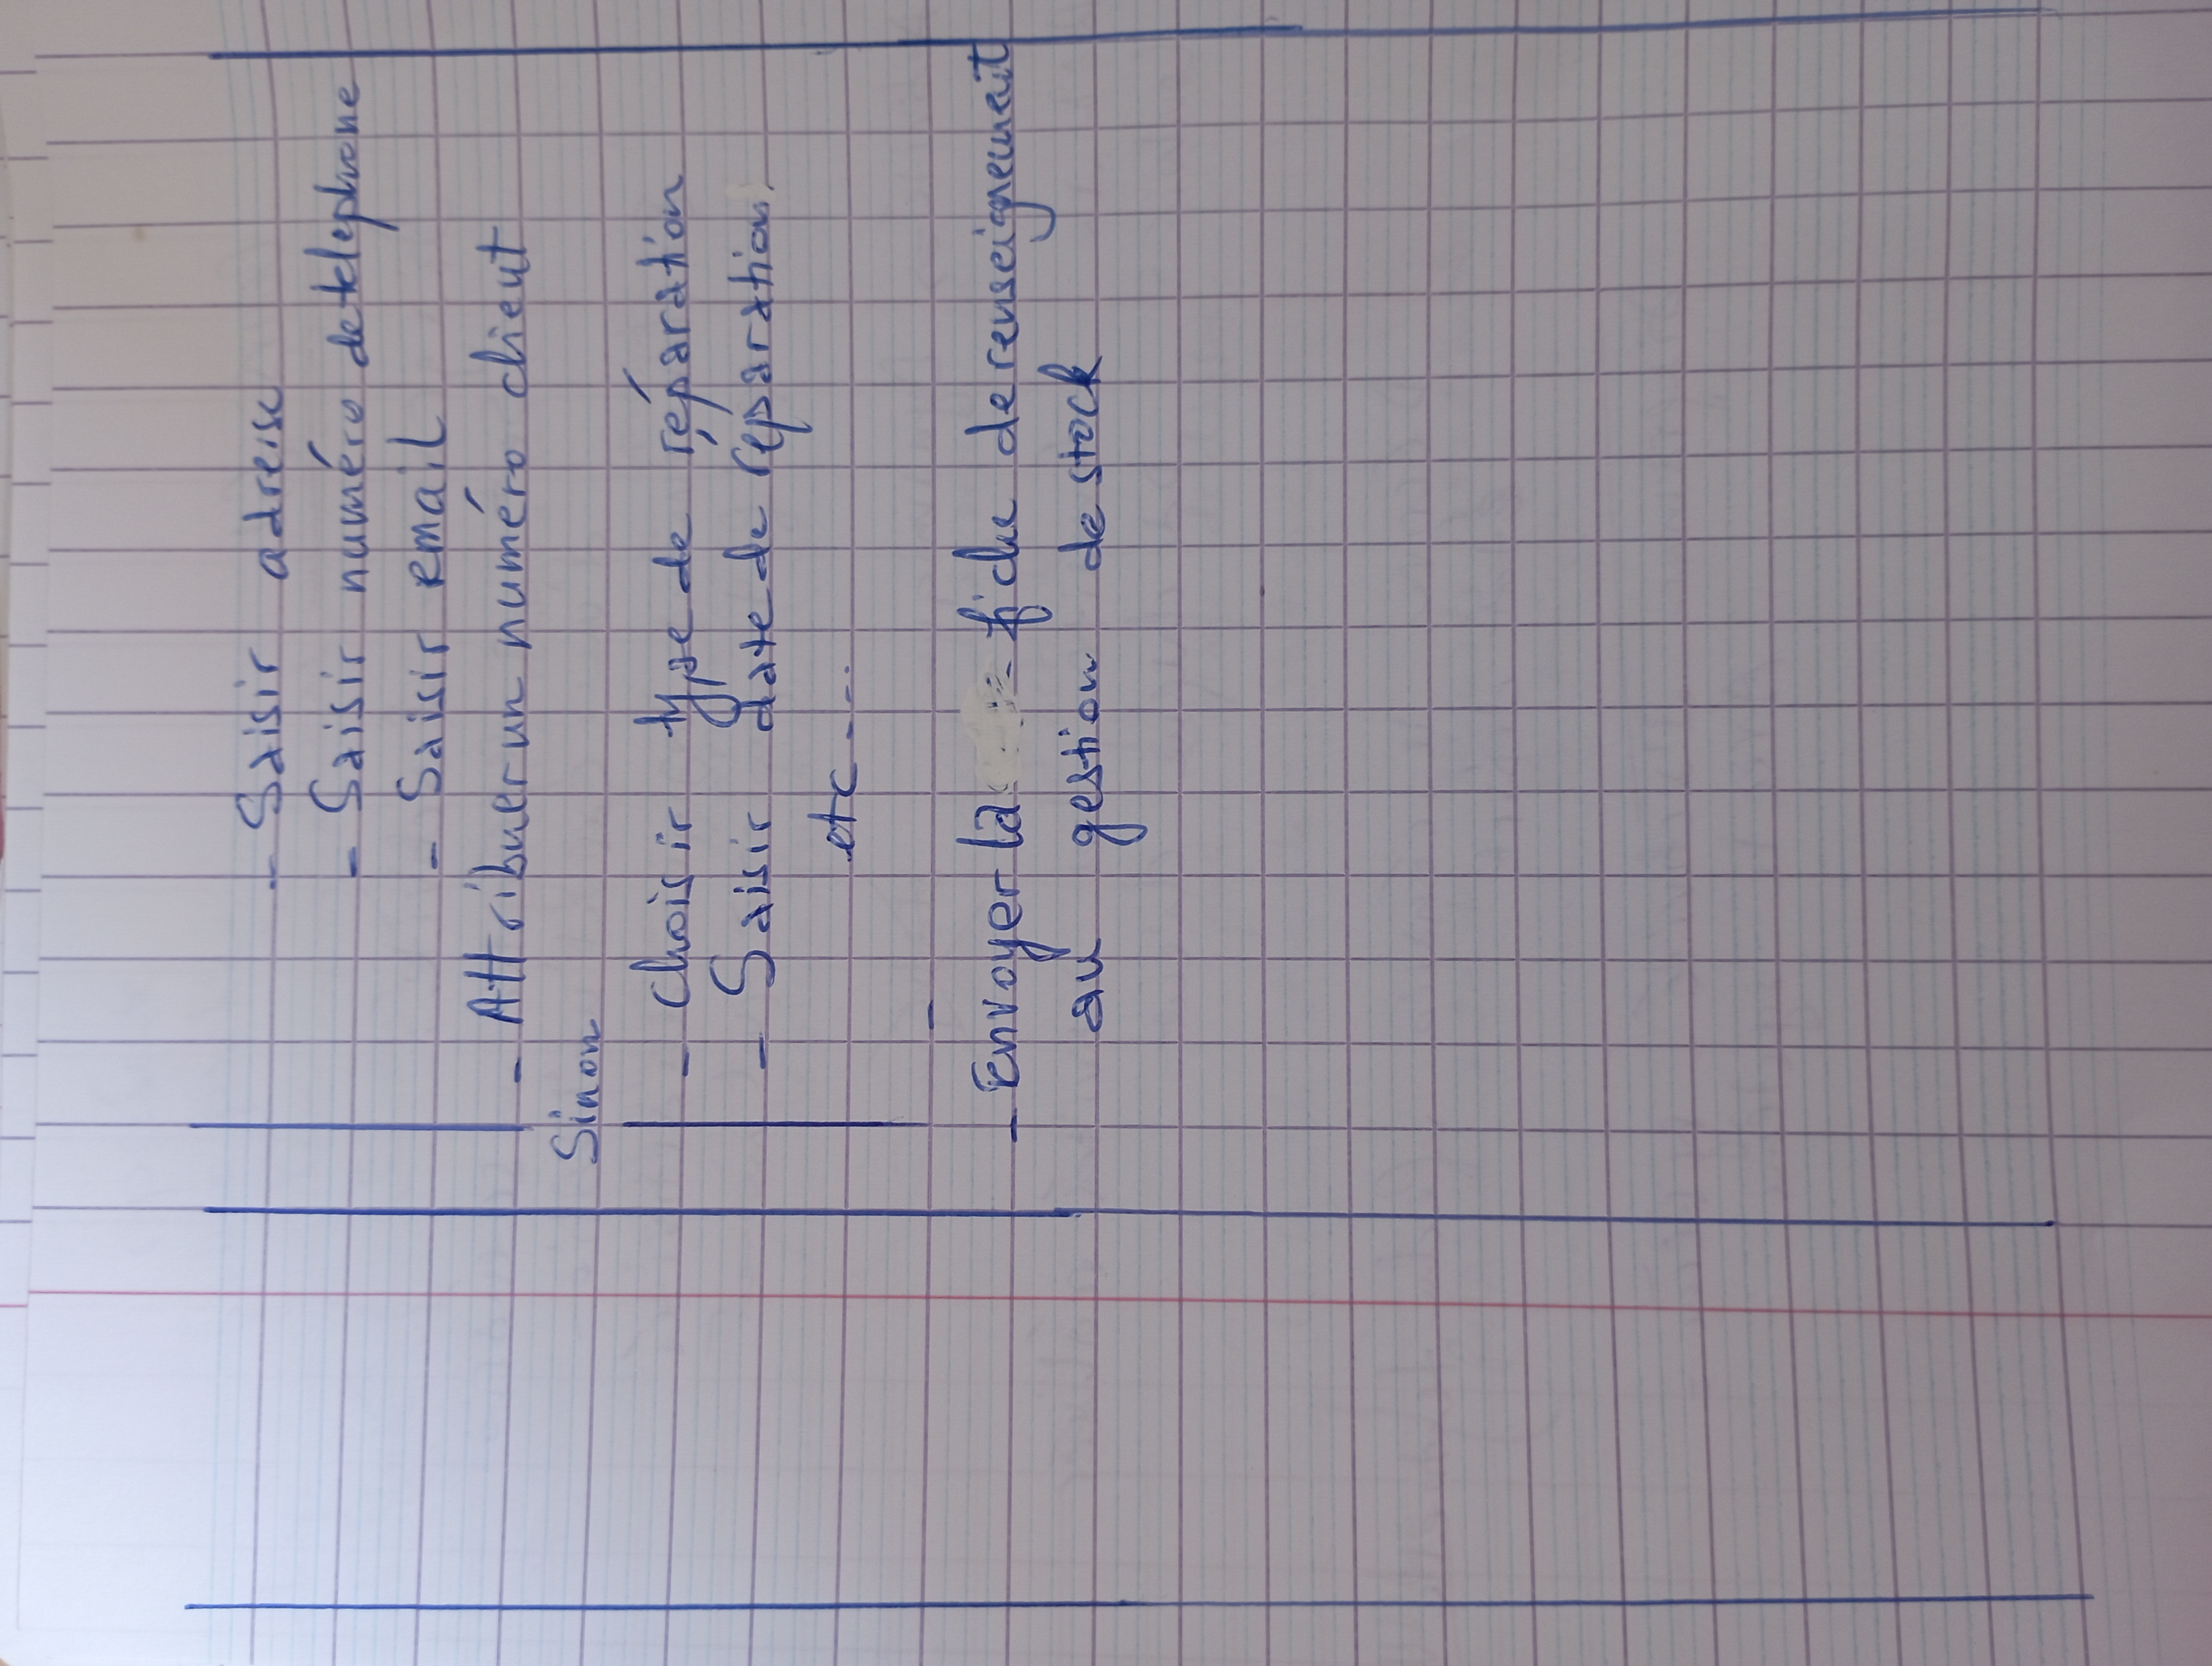 - Saisir adresse
- Saisir numéro de telephone
- Saisir email
- Attribuer un numéro client
Sinon
- Choisir type de réparation
- Saisir date de réparation.
etc ---
-
- Envoyer la fiche de renseignement
au gestion de stock